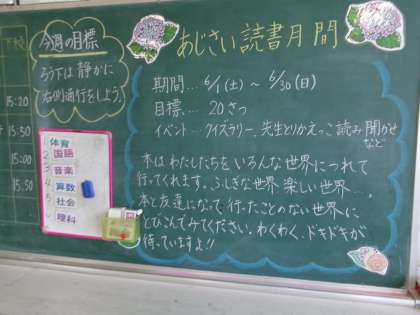 下校
15:20
15:50
15:00
15:50
今週の目標
ろう下は静かに
右側通行をしよう。
1 体育
2 国語
3 音楽
4 算数
5 社会
理科
あじさい読書月間
期間… 6/1(土) ~ 6/30(日)
目標… 20さつ
イベント… クイズラリー、先生とりかえっこ読み聞かせ
など
本はわたしたちを いろんな世界につれて
行ってくれます。ふしぎな世界、楽しい世界…。
本と友達になって、行ったことのない世界に
とびこんでみてください。わくわく、ドキドキが
待っていますよ!!